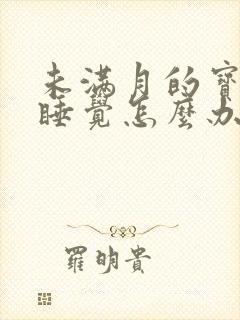 未满月的寶
睡覺怎麼办
羅明貴